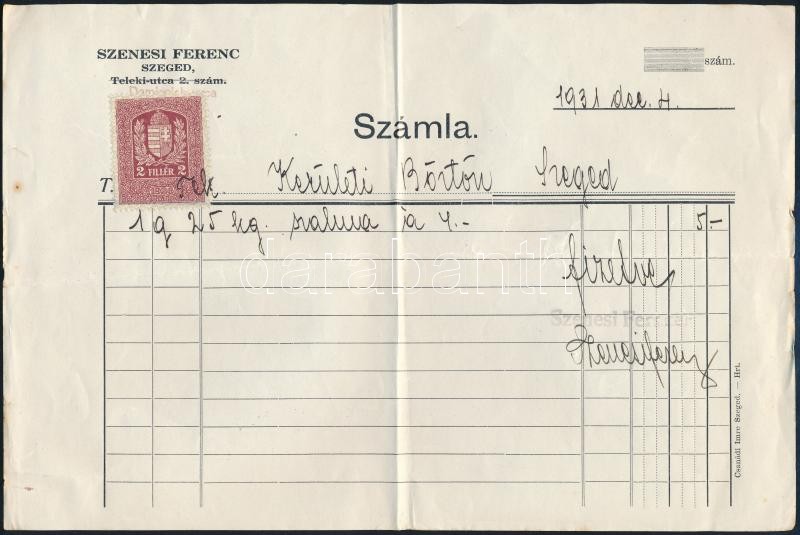 SZENESI FERENC
SZEGED,
Teleki-utca 2. szám.
szám.
1931 dec. 4.
Számla.
2 FILLÉR 2
T. Tek. Kerületi Börtön Szeged
1 q 25 kg. szalma à 4.- 5.-
fizetve
Szenesi Ferenc
Szenesi Ferenc
Csanádi Imre Szeged. — Hrt.
darabanth